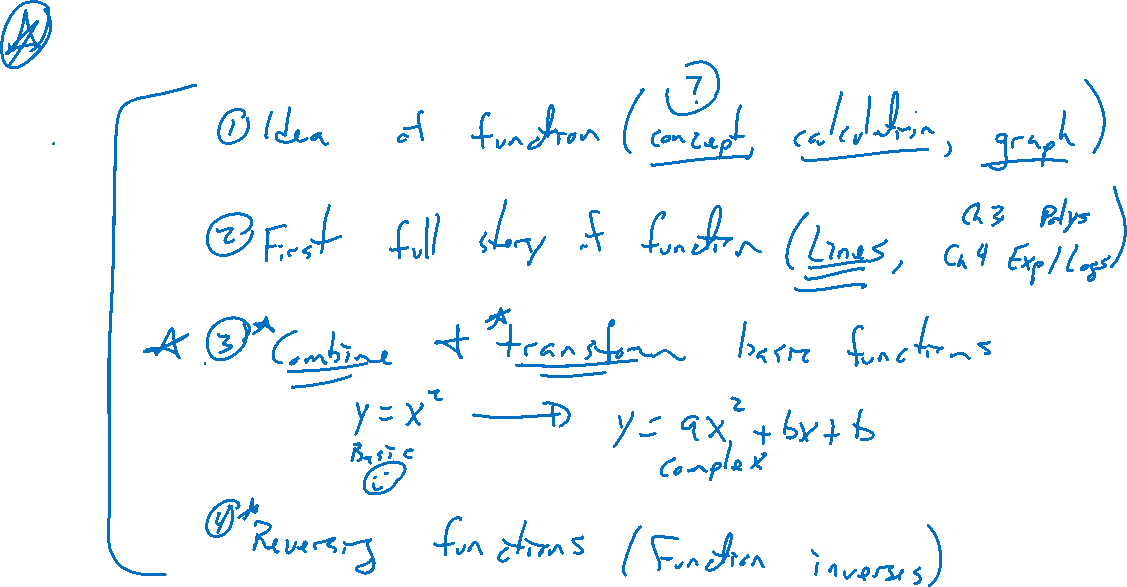 ?
① Idea of function (concept, calculation, graph)
② First full story of function (Lines, Ch 3 Polys
Ch 4 Exp/Logs)
③ Combine + transform basic functions
y = x² → y = ax² + bx + b
Basic complex
④ Reversing functions (Function inverses)